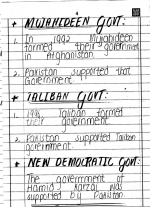 * MUJAHIDEEN GOVT:
1. In 1992 Mujahideen
formed their government
in Afghanistan.
2. Pakistan supported that
government.
* TALIBAN GOVT:
1. 1996 Taliban formed
their government.
2. Pakistan supported Taliban
government.
* NEW DEMOCRATIC GOVT:
The government of
Hamid Karzai was
supported by Pakistan.